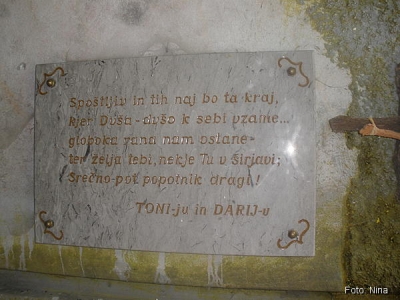 Spoštljiv in tih naj bo ta kraj,
kjer Duša-dušo k sebi vzame...
globoka rana nam ostane-
ter želja tebi, nekje Tu v širjavi;
Srečno-pot popotnik dragi!
TONI-ju in DARIJ-u
Foto: Nina